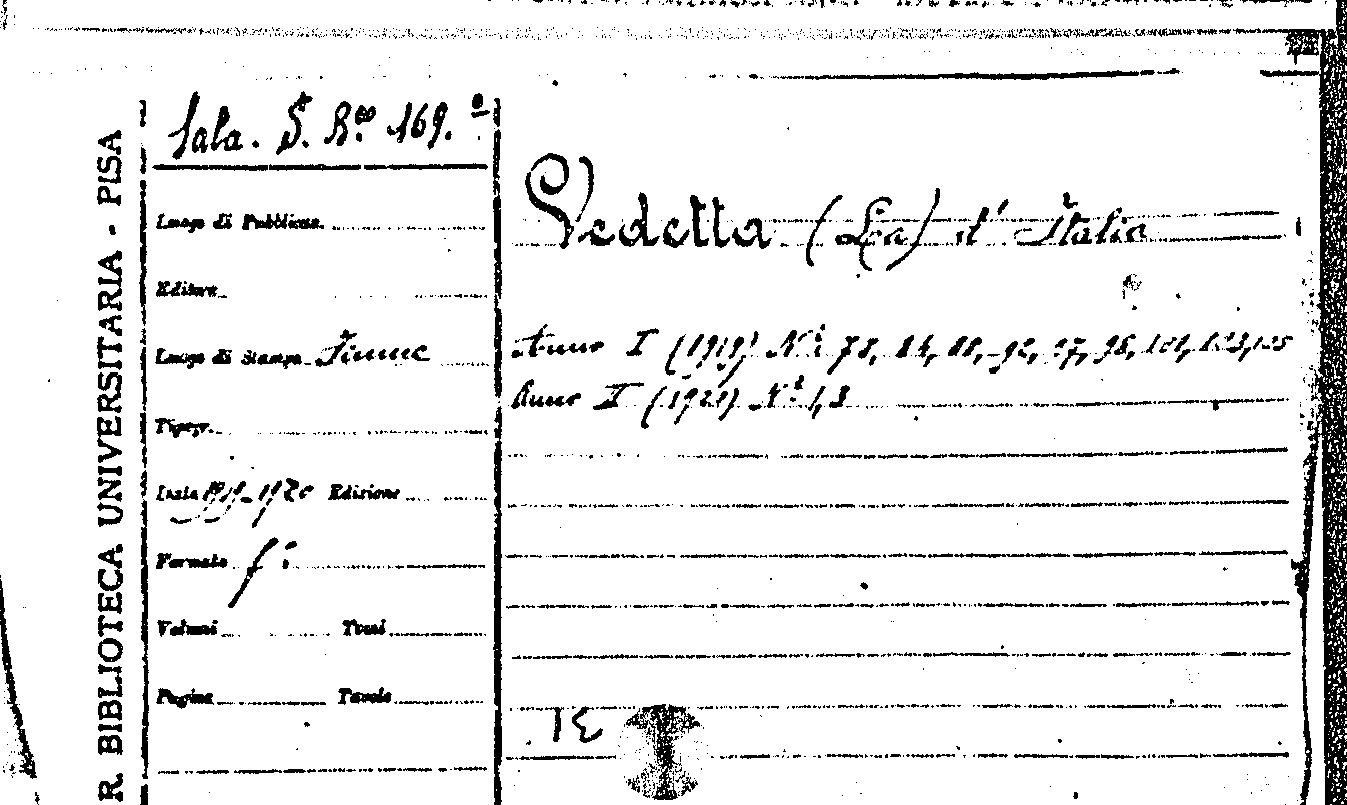 R BIBLIOTECA UNIVERSITARIA - PISA
Sala. S. R.co 169.a
Luogo di Pubblicaz.
Editore
Luogo di Stampa Fiume
Tipogr.
Data 1919-1920 Edizione
Formato f°
Volumi Tomi
Pagine Tavole
Vedetta (La) d'Italia
Anno I (1919) N.i 78, 84, 88, 92, 97, 98, 101, 123, 125
Anno II (1920) N.i 1, 3